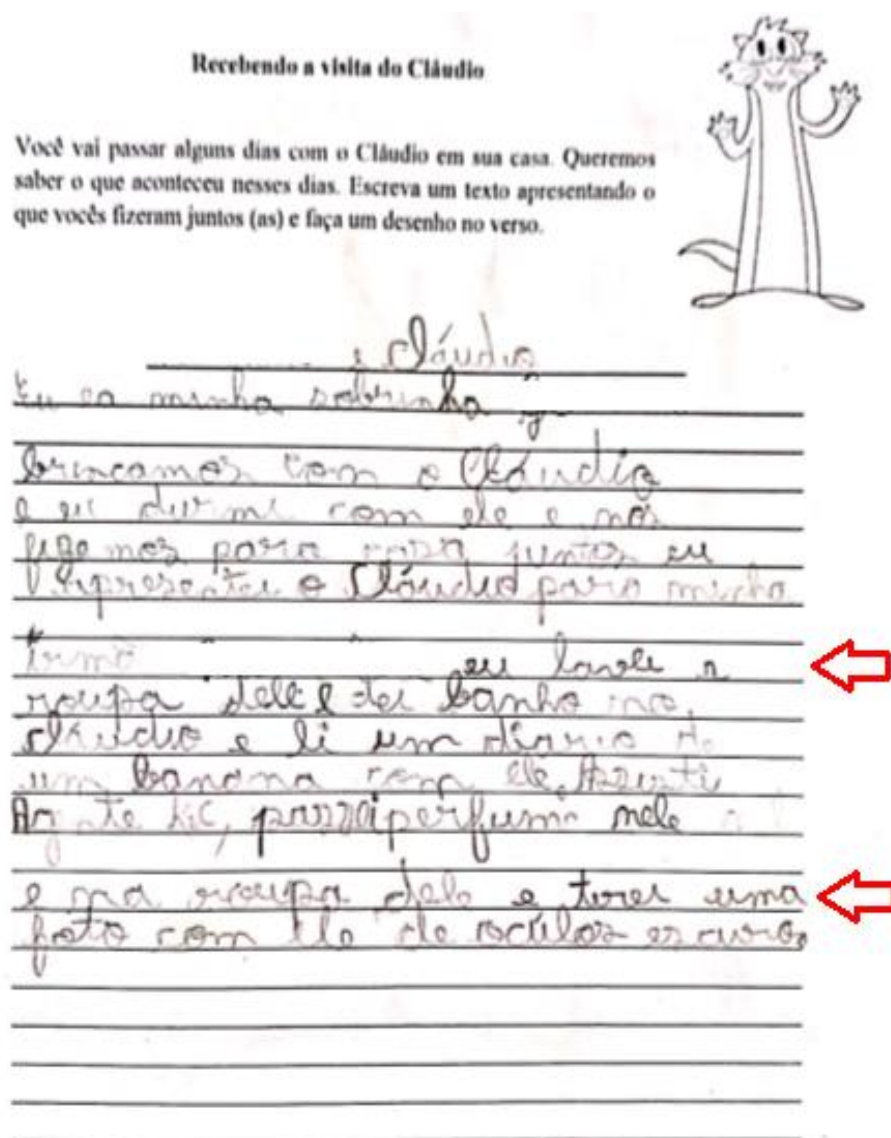 Recebendo a visita do Cláudio
Você vai passar alguns dias com o Cláudio em sua casa. Queremos
saber o que aconteceu nesses dias. Escreva um texto apresentando o
que vocês fizeram juntos (as) e faça um desenho no verso.
e Cláudio
Eu ea minha sobrinha
brincamos com o Cláudio
e eu durmi com ele e nós
fizemos para casa juntos eu
apresentei o Cláudio para minha
irmã eu lavei a
roupa dele e dei banho no
Cláudio e li um diario de
um banana com ele Assisti
passei perfume nele
e na roupa dele e tirei uma
foto com ele de oculos escuros